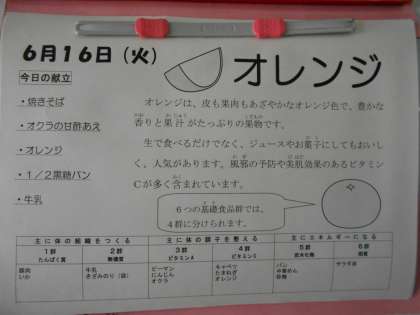 6月16日（火）
オレンジ
今日の献立
・焼きそば
・オクラの甘酢あえ
・オレンジ
・1／2黒糖パン
・牛乳
オレンジは、皮も果肉もあざやかなオレンジ色で、豊かな
香りと果汁がたっぷりの果物です。
生で食べるだけでなく、ジュースやお菓子にしてもおいし
く、人気があります。風邪の予防や美肌効果のあるビタミン
Cが多く含まれています。
6つの基礎食品群では、
4群に分けられます。
主に体の組織をつくる 主に体の調子を整える 主にエネルギーになる
1群 2群 3群 4群 5群 6群
たんぱく質 無機質 ビタミンA ビタミンC 炭水化物 脂質
豚肉 牛乳 ピーマン キャベツ パン サラダ油
いか きざみのり（袋） にんじん たまねぎ 中華めん
オクラ オレンジ 砂糖